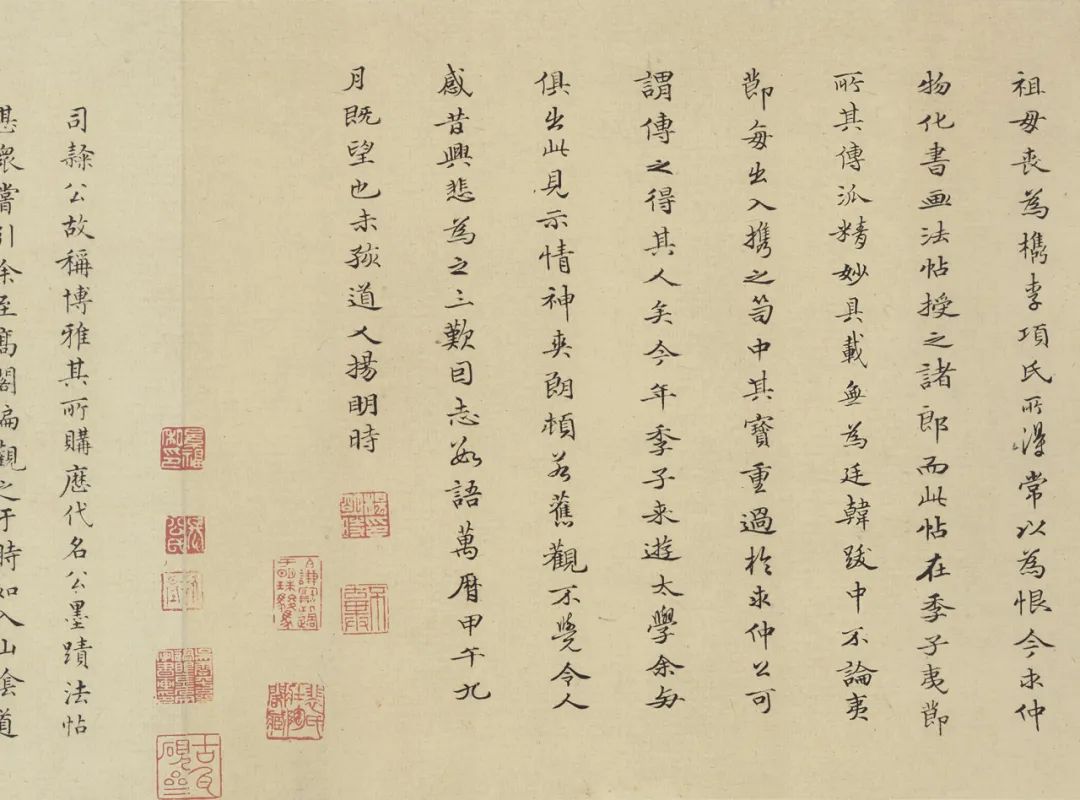 祖毋丧為檇李項氏所得常以為恨今永仲
物化書畫法帖授之諸郎而此帖在季子夷節
所其傳派精妙具載無為廷韓跋中不論夷
節每出入携之笥中其寶重過於永仲公可
謂傳之得其人矣今年季子来遊太學余每
俱出此見示情神爽朗頓若舊觀不覺令人
感昔興悲為之三歎因志數語萬曆甲午九
月既望也未孩道人揚明時
司隸公故稱博雅其所購歷代名公墨蹟法帖
甚衆嘗引余至寫閣徧觀之于時如入山陰道